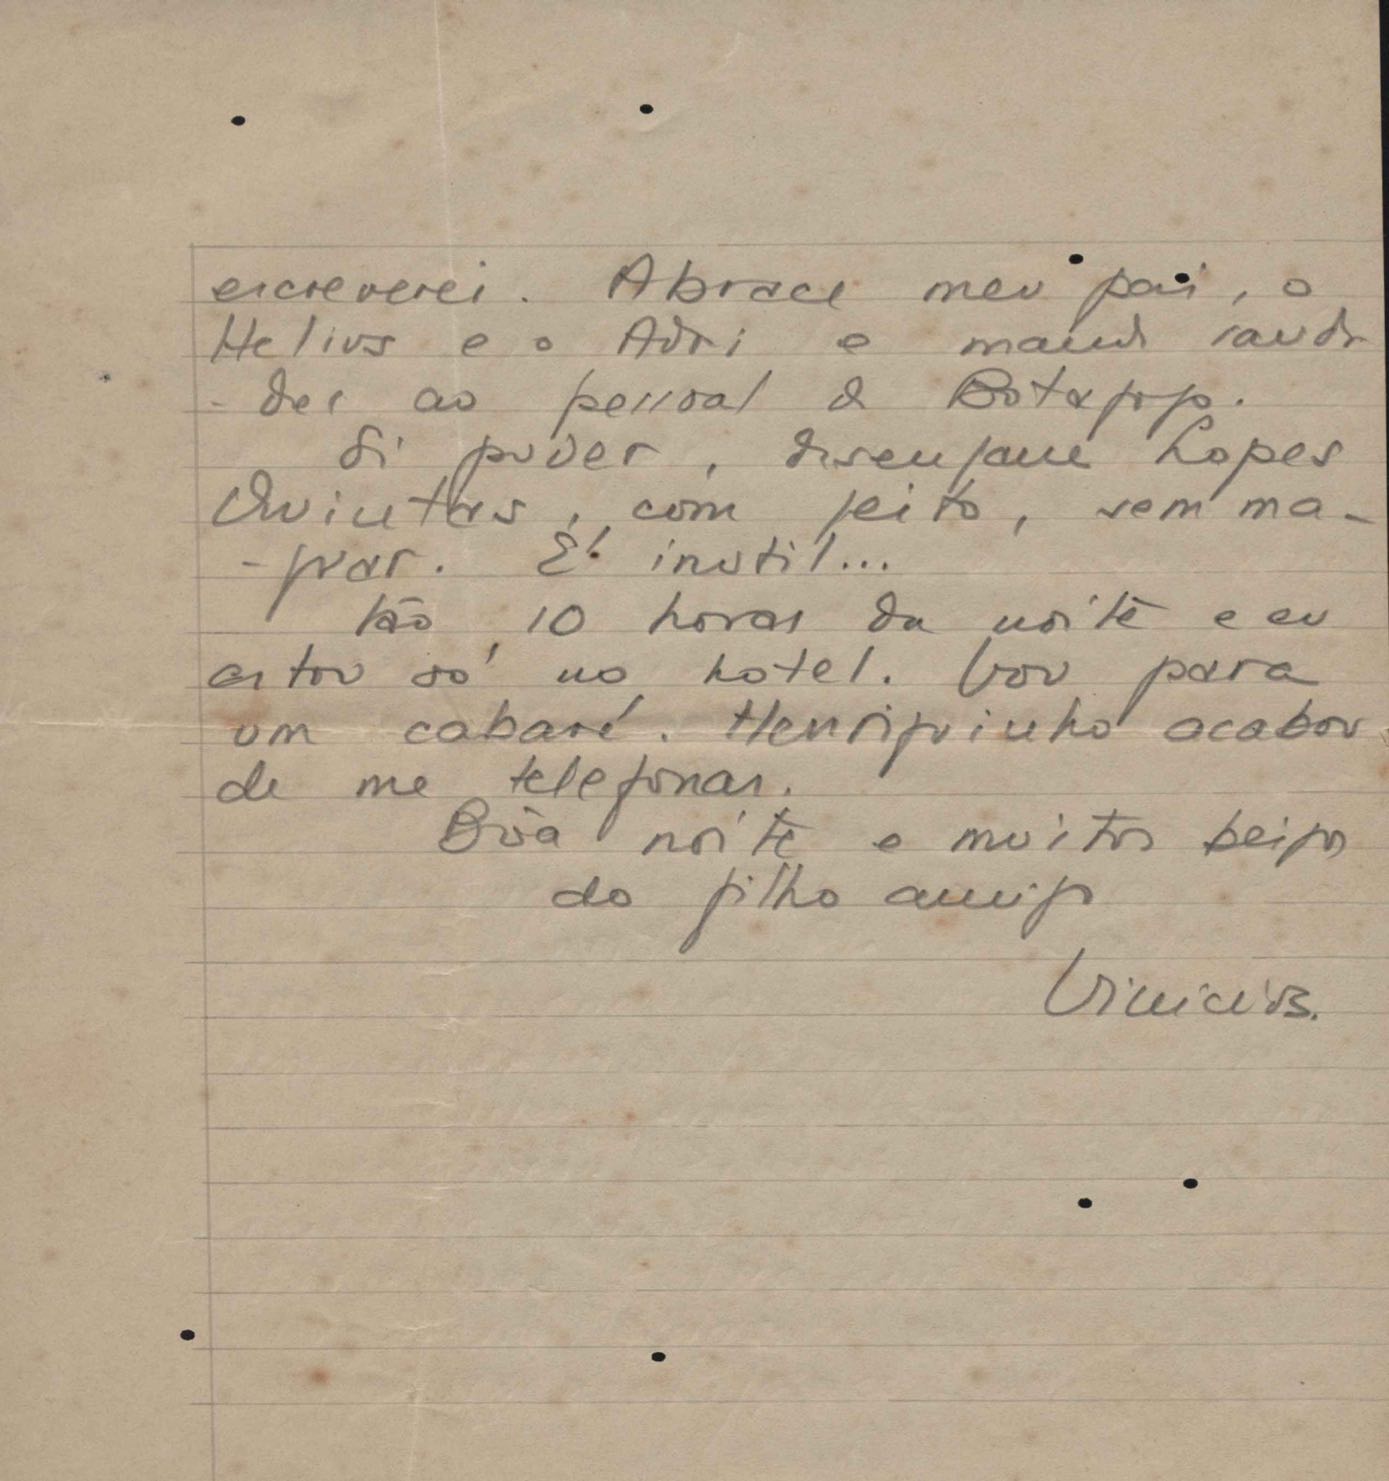 escreverei. Abrace meu pai, o
Helius e o Adri e mande sauda
-des ao pessoal de Botafogo.
Si puder, desengane Lopes
Quintas, com jeito, sem ma-
-goar. É inutil...
São 10 horas da noite e eu
estou só no hotel. Vou para
um cabaré. Henriquinho acabou
de me telefonar.
Bôa noite e muitos beijos
do filho amigo
Vinicius.